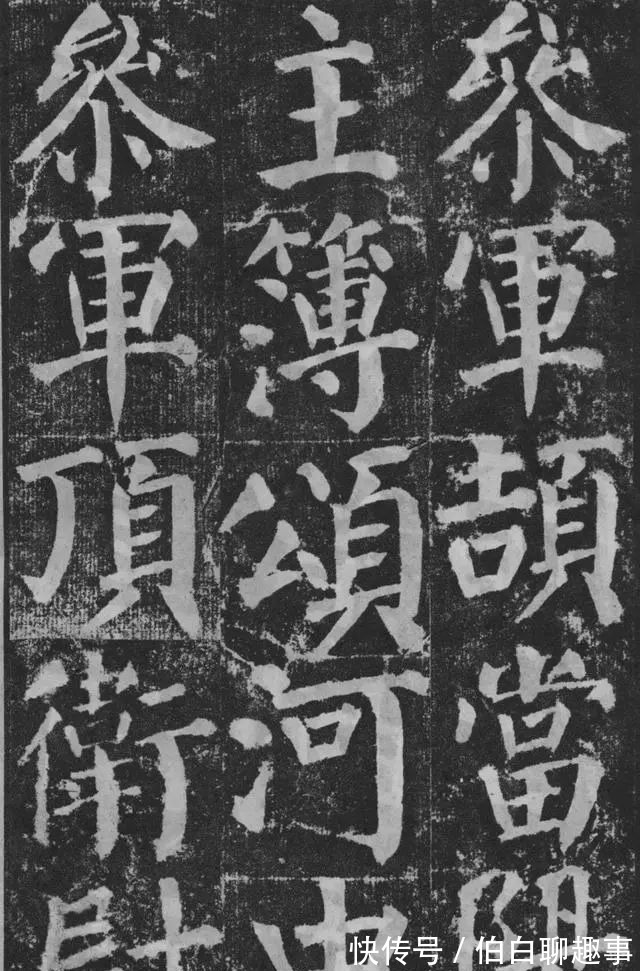 參軍頡當
主簿頌河
參軍頂衛
快传号 / 伯白聊趣事